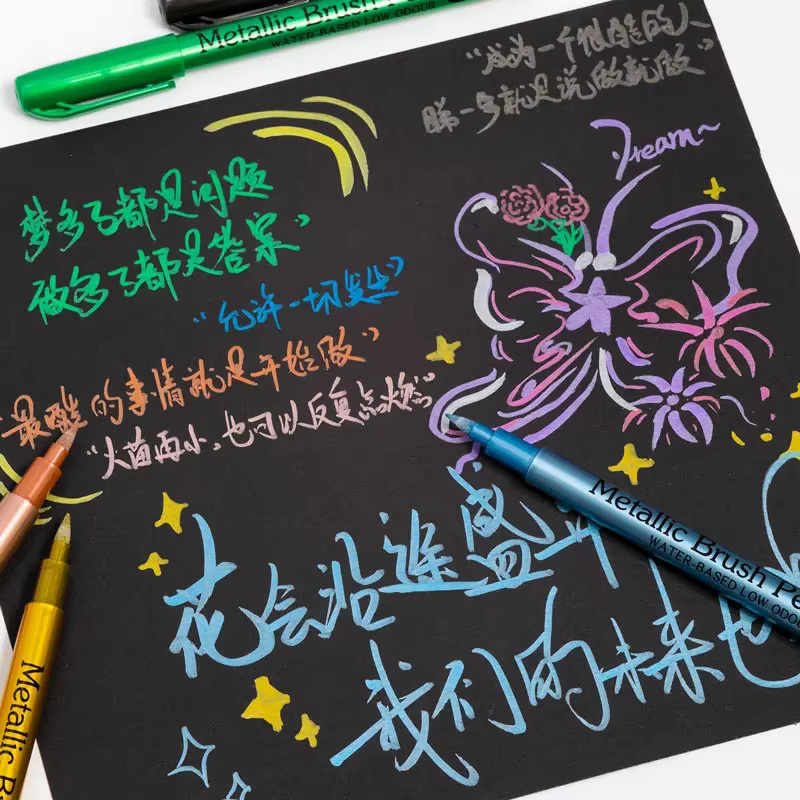 Metallic Brush Pe
WATER-BASED LOW ODOUR
"成为一个很酷的人
第一步就是说做就做"
Dream~
梦多了都是问题
做多了都是答案"
"允许一切发生"
"最酷的事情就是开始做"
"火苗再小,也可以反复点燃"
花会沿途盛开
我们的未来也
Metallic Brush Pe
WATER-BASED LOW ODOU
Metallic B